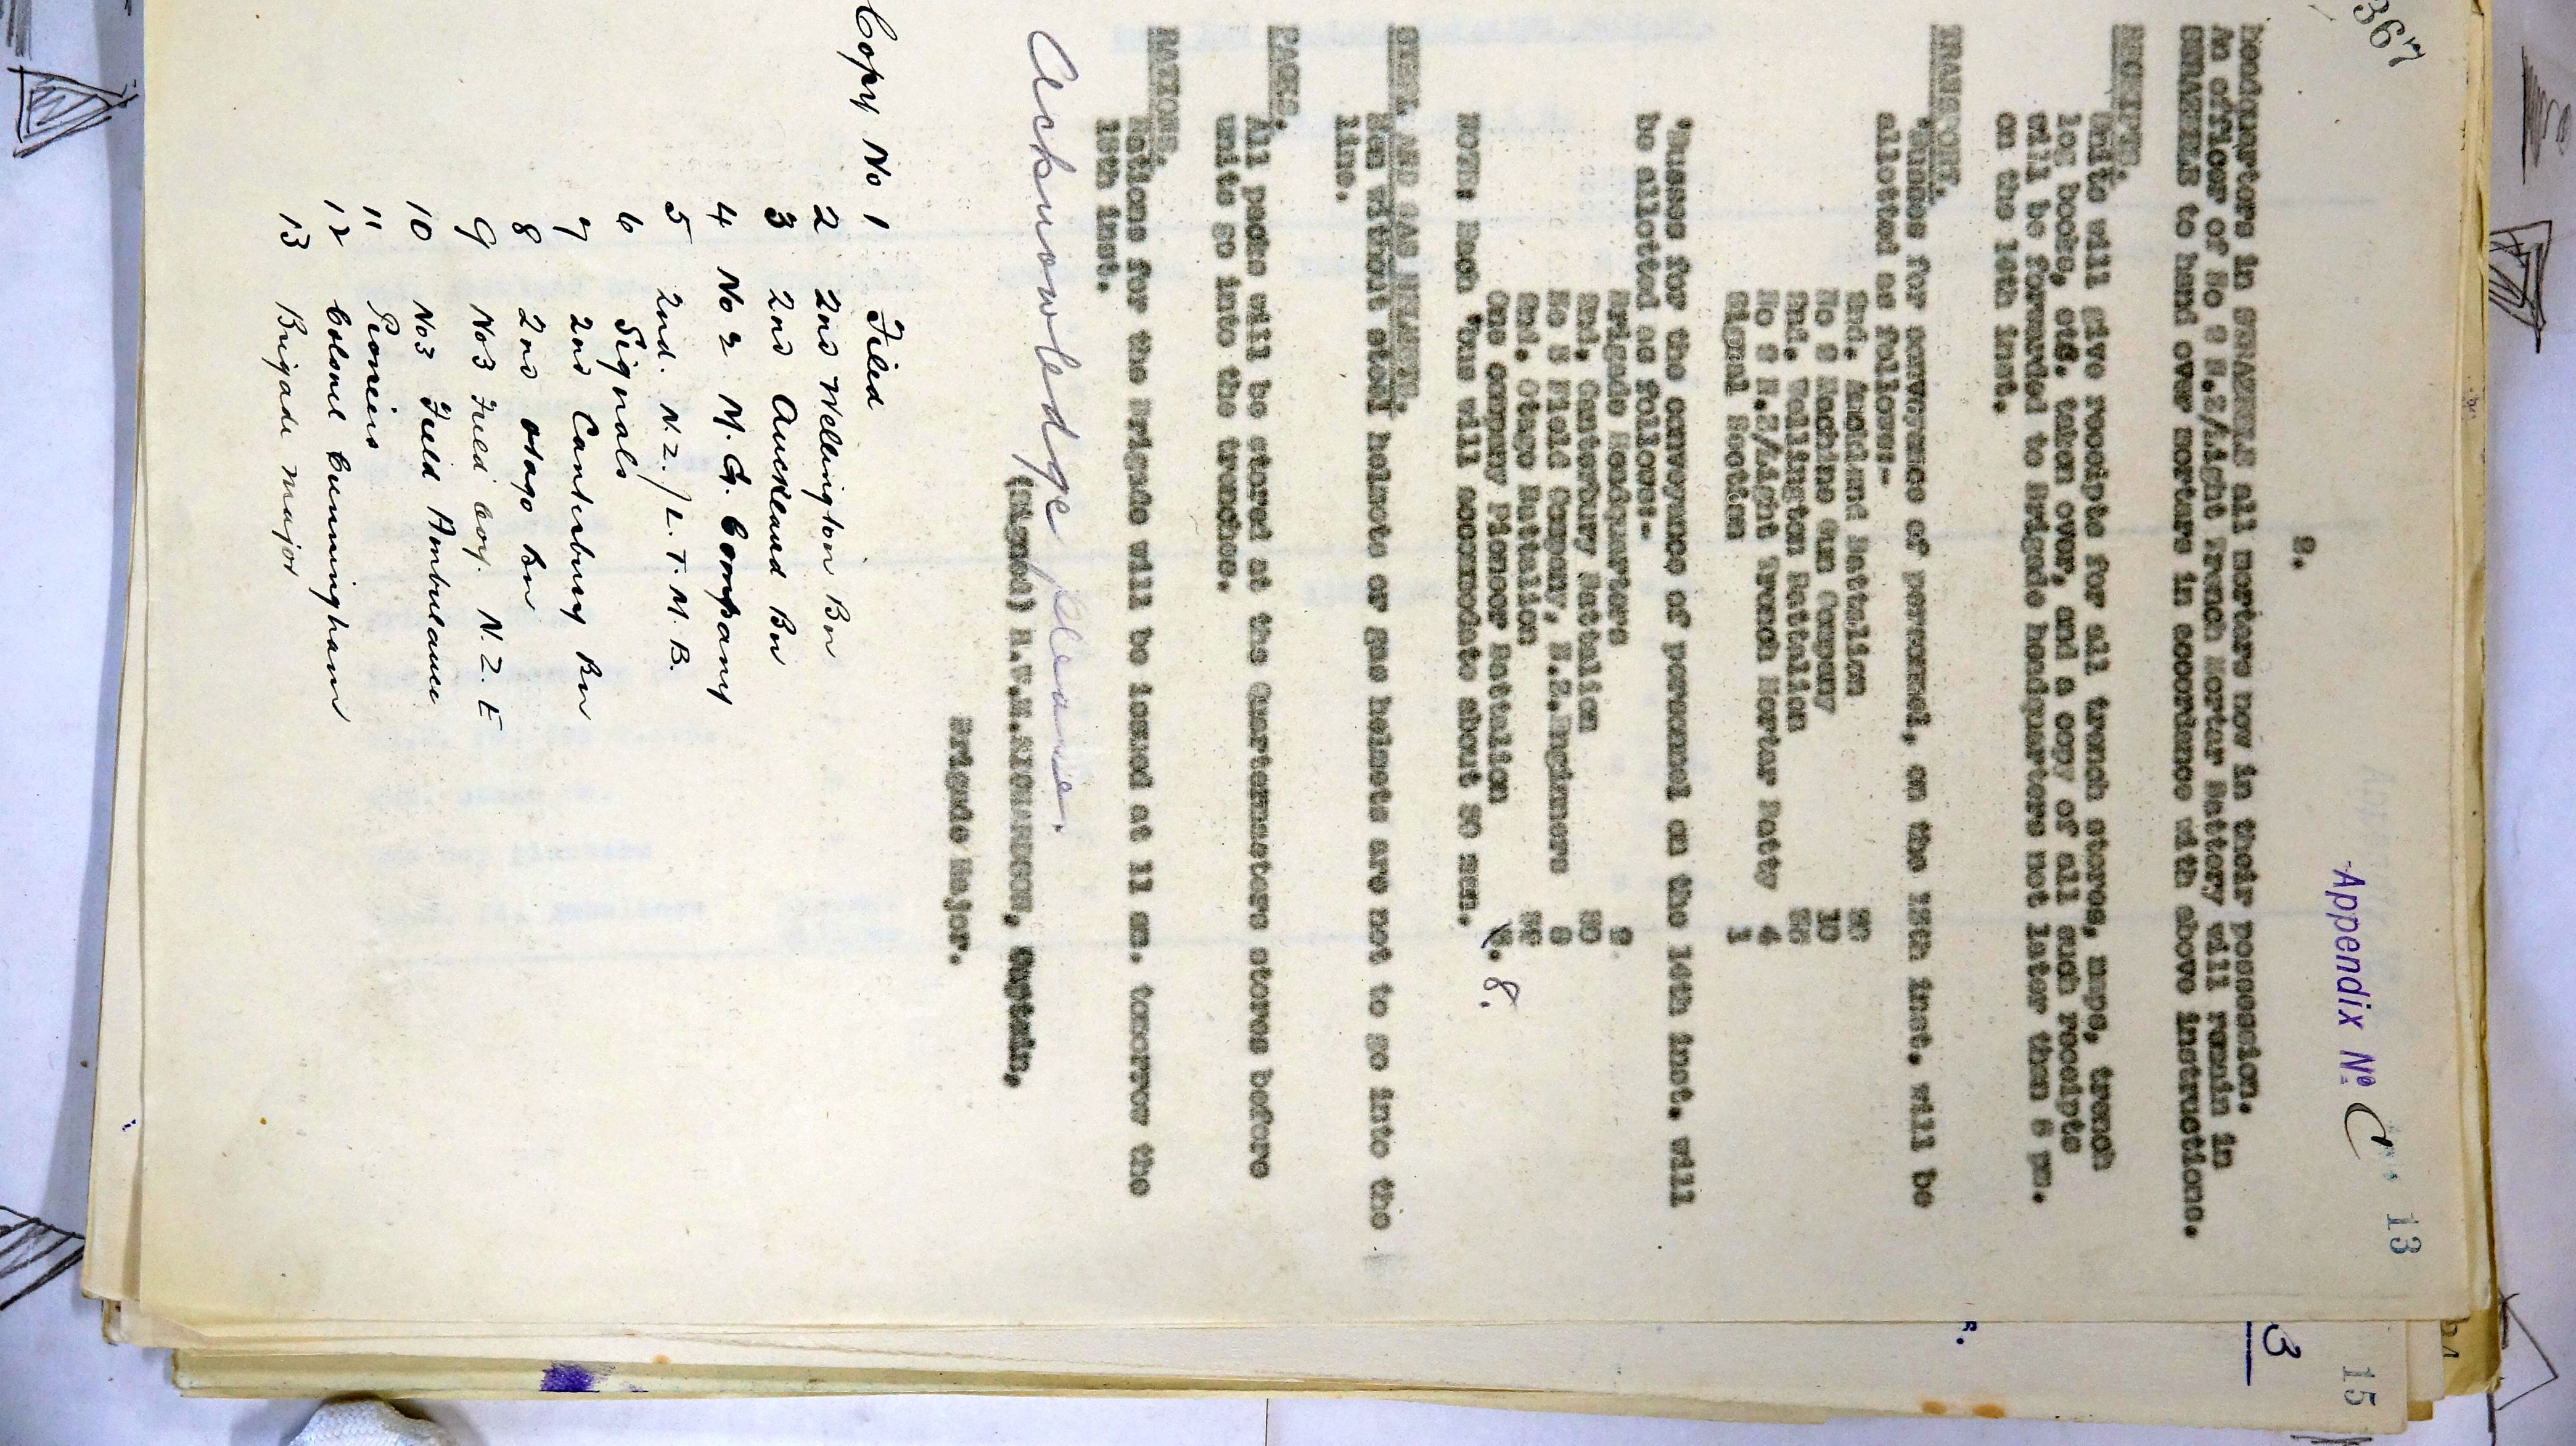 367
Appendix Nº C
13
2.
headquarters in STRAZEELE all mortars now in their possession.
An officer of No 2 N.Z/Light Trench Mortar Battery will remain in
STRAZEELE to hand over mortars in accordance with above instructions.
RECEIPTS.
Units will give receipts for all trench stores, maps, trench
log books, etc. taken over, and a copy of all such receipts
will be forwarded to Brigade headquarters not later than 6 pm.
on the 14th inst.
TRANSPORT.
'Busses for conveyance of personnel, on the 13th inst. will be
allotted as follows:-
2nd. Auckland Battalion
No 2 Machine Gun Company 10
2nd. Wellington Battalion
No 2 N.Z/Light Trench Mortar Batty 4
Signal Section 1
'Busses for the conveyance of personnel on the 14th inst. will
be allotted as follows:-
Brigade Headquarters
2nd. Canterbury Battalion
No 3 Field Company, N.Z.Engineers
2nd. Otago Battalion
One company Pioneer Battalion 8.
NOTE: Each 'bus will accommodate about 20 men.
STEEL AND GAS HELMETS.
Men without steel helmets or gas helmets are not to go into the
line.
PACKS.
All packs will be stored at the Quartermasters stores before
units go into the trenches.
RATIONS.
Rations for the Brigade will be issued at 11 am. tomorrow the
13th inst.
Acknowledge please.
(Signed) H.V.M.RICHARDSON, Captain,
Brigade Major.
Copy No 1 Filed
2 2nd Wellington Bn
3 2nd Auckland Bn
4 No 2 M. G. Company
5 2nd. N.Z./L. T. M. B.
6 Signals
7 2nd Canterbury Bn
8 2nd Otago Bn
9 No3 Field Coy. N.Z.E
10 No3 Field Ambulance
11 Pioneers
12 Colonel Cunningham
13 Brigade Major
3
15